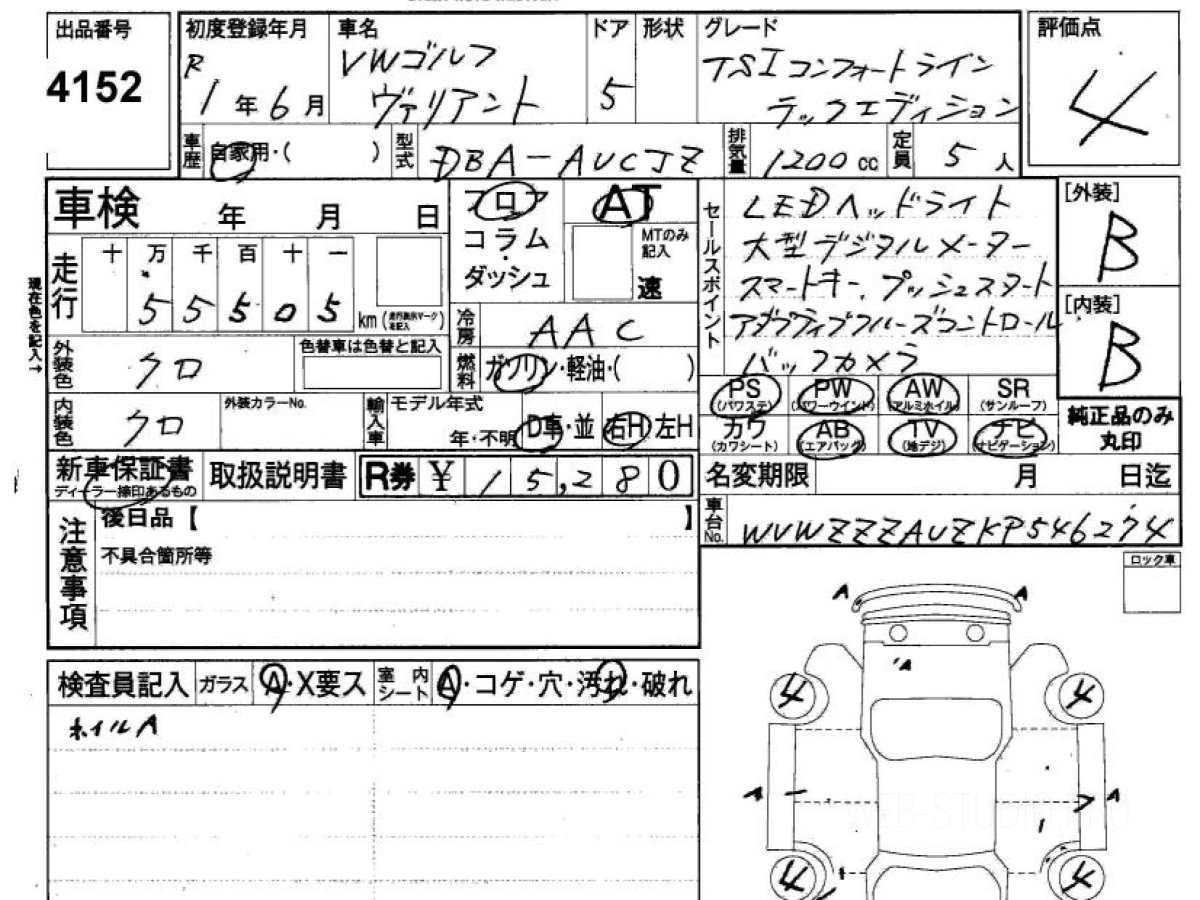 出品番号
4152
初度登録年月
R
1年6月
車名
VWゴルフ
ヴァリアント
ドア
5
形状
グレード
TSIコンフォートライン
テックエディション
評価点
4
車歴
自家用・( )
型式
DBA-AUCJZ
排気量
1200cc
定員
5人
車検 年 月 日
走行
十 万 千 百 十 一
5 5 5 0 5
km(走行表示マークを記入)
現在色を記入→
フロア
コラム
・
ダッシュ
AT
MTのみ
記入
速
冷房
AAC
燃料
ガソリン・軽油・( )
セールスポイント
LEDヘッドライト
大型デジタルメーター
スマートキー、プッシュスタート
アダプティブクルーズコントロール
バックカメラ
[外装]
B
[内装]
B
外装色
クロ
色替車は色替と記入
内装色
クロ
外装カラーNo.
輸入車
モデル年式
年・不明
D車・並
右H 左H
PS
(パワステ)
PW
(パワーウインド)
AW
(アルミホイル)
SR
(サンルーフ)
カワ
(カワシート)
AB
(エアバック)
TV
(地デジ)
ナビ
(ナビゲーション)
純正品のみ
丸印
新車保証書
ディーラー捺印あるもの
取扱説明書
R券 ¥ 15,280
名変期限 月 日迄
車台No.
WVWZZZAUZKP546274
注意事項
後日品【 】
不具合箇所等
ロック車
検査員記入
ガラス
A・X要ス
室内シート
A・コゲ・穴・汚れ・破れ
ホイルA
A A
A
4 4
A A
4 4
WEB-STUDIO.PRO